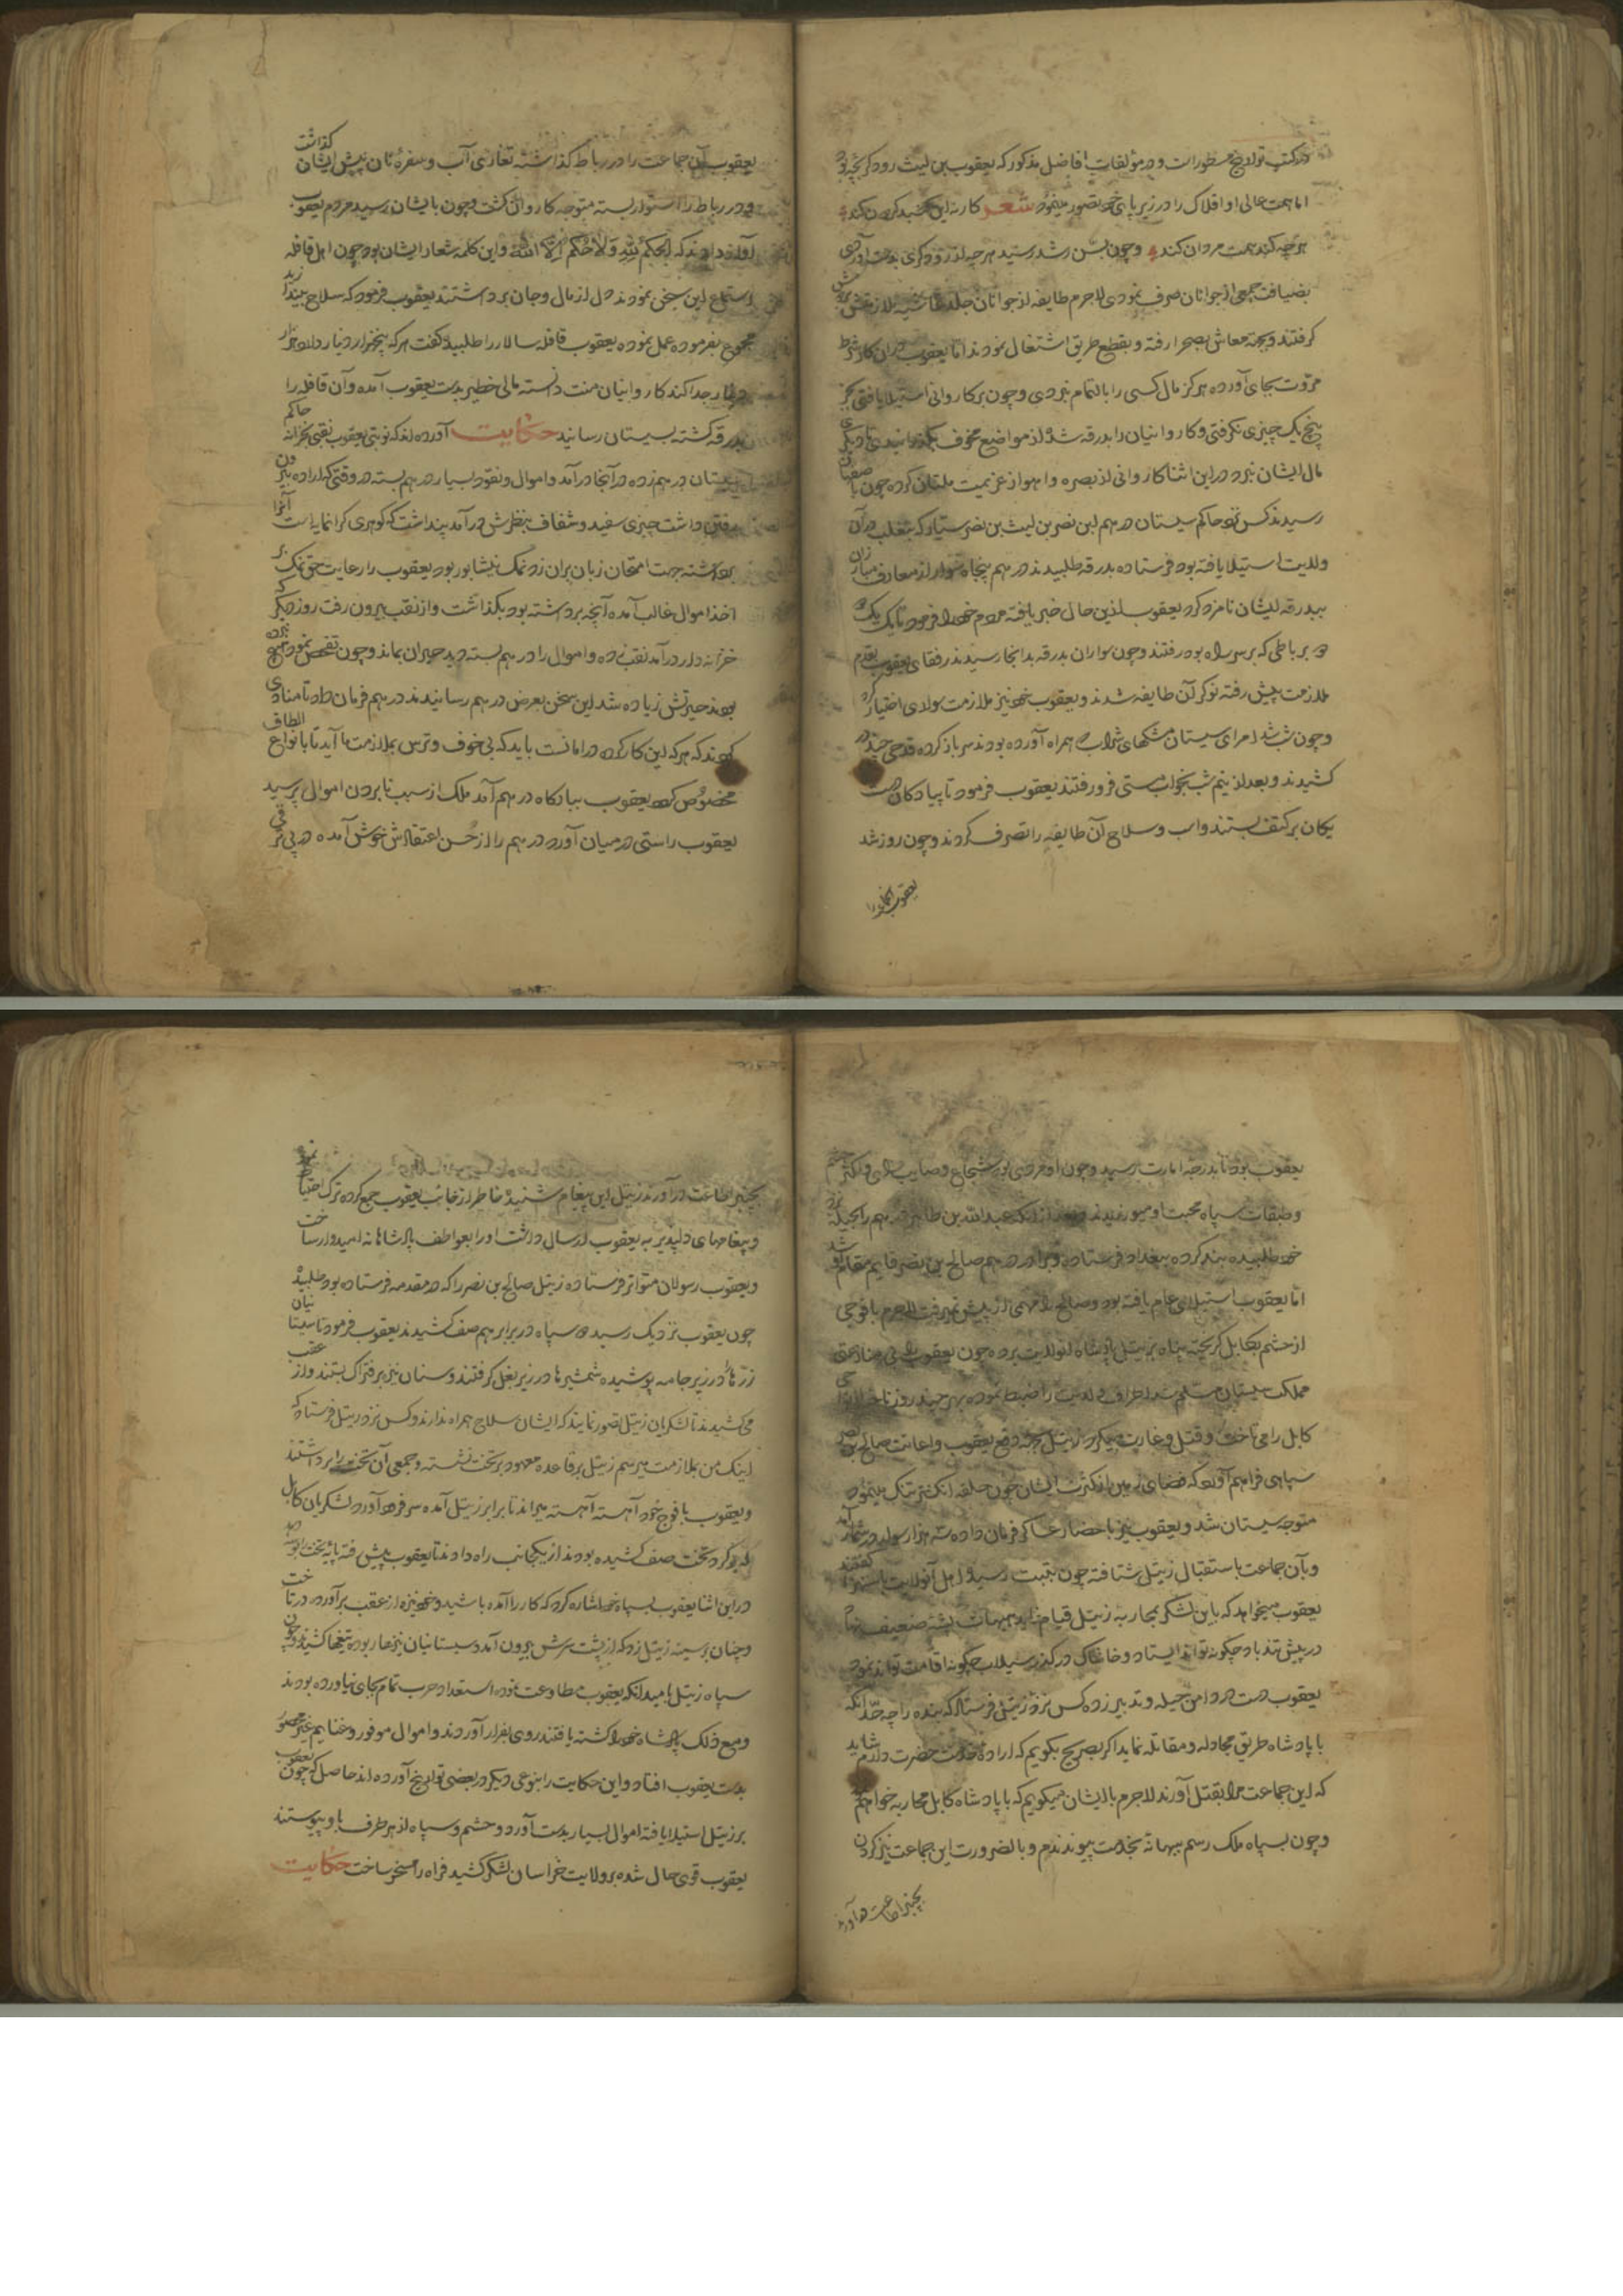 در کتب تواریخ مسطورات و در مؤلفات افاضل مذکور که یعقوب بن لیث رودگر بچه بود
اما همت عالی او افلاک را در زیر پای خود تصور مینمود شعر کار نه این گنبد گردون کند
هر چه کند همت مردان کند و چون بسن رشد رسید هر چه از رودگری بدست آوردی
بضیافت جمعی از جوانان صرف نمودی لاجرم طایفه از جوانان جلد غاشیه ملازمتش بر دوش
گرفتند و بجهة معاش بصحرا رفته و بقطع طریق اشتغال نمودند اما یعقوب در ان کار شرط
مروت بجای آورده هرگز مال کسی را بالتمام نبردی و چون بر کاروانی استیلا یافتی جز
پنج یک چیزی نگرفتی و کاروانیان را بدرقه شده از مواضع مخوف بگذرانیدی تا دیگری
مال ایشان نبرد در این اثنا کاروانی از بصره و اهواز عزیمت ملتان کرده چون باصفهان
رسیدند کس نزد حاکم سیستان درهم بن نصر بن لیث بن نصر سیار که بتغلب در آن
ولایت استیلا یافته بود فرستاده بدرقه طلبیدند درهم پنجاه سوار از معارف مبارزان
ببدرقه ایشان نامزد کرد یعقوب از این حال خبر یافته مردم خود را فرمود تا یک یک
در رباطی که بر سر راه بود رفتند و چون سواران بدرقه بدانجا رسیدند رفقای یعقوب بقدم
ملازمت پیش رفته نوکر آن طایفه شدند و یعقوب خود نیز ملازمت سولای اختیار کرد
و چون شب شد امرای سیستان مشکهای شراب که همراه آورده بودند سر باز کرده قدحی چند در
کشیدند و بعد از نیم شب بخواب مستی فرو رفتند یعقوب فرمود تا پیادگان دست
یکان بر کتف بستند و اسب و سلاح آن طایفه را تصرف کردند و چون روز شد
یعقوب آنجماعت را
یعقوب آن جماعت را در رباط گذاشته تغاری آب و سفره نان پیش ایشان گذاشت
و در رباط را استوار بسته متوجه کاروان گشت و چون بایشان رسید مردم یعقوب
آواز دادند که الحکم لله ولا حکم الا الله و این کلمه شعار ایشان بود چون اهل قافله
استماع این سخن نمودند دل از مال و جان برداشتند یعقوب فرمود که سلاح بیندازید
مجموع بفرموده عمل نموده یعقوب قافله سالار را طلبید و گفت هر که پنجهزار دینار دارد هزار
دینار جدا کند کاروانیان منت دانسته مالی خطیر بدست یعقوب آمده و آن قافله را
بدرقه گشته بسیستان رسانید حکایت آورده اند که نوبتی یعقوب نقبی بخزانه حاکم
سیستان درهم زده در آنجا درآمد و اموال و نقود بسیار درهم بسته در وقتی که اراده بیرون
رفتن داشت چیزی سفید و شفاف بنظرش درآمد پنداشت که گوهری گرانمایه است آنرا
برداشته جهت امتحان زبان بران زد نمک نیشابور بود یعقوب را رعایت حق نمک بر
اخذ اموال غالب آمده آنچه برداشته بود بگذاشت و از نقب بیرون رفت روز دیگر که
خزانه دار درآمد نقب زده و اموال را درهم بسته دید حیران بماند و چون تفحص نمود هیچ نبرده
بودند حیرتش زیاده شد این سخن بعرض درهم رسانیدند درهم فرمان داد تا منادی
کردند که هر که این کار کرده در امانست باید که بی خوف و ترس بملازمت ما آید تا بانواع الطاف
مخصوص گردد یعقوب ببارگاه درهم آمد ملک از سبب نابردن اموال پرسید
یعقوب راستی در میان آورد درهم را از حسن اعتقادش خوش آمده در پی ترقی
یعقوب بود تا بدرجه امارت رسید و چون او مردی بود شجاع و صایب رای و اکثر حشم
و طبقات سپاه محبت او میورزیدند و بعد از آنکه عبدالله بن طاهر درهم را بحیله نزد
خود طلبیده بند کرده ببغداد فرستاد و برادر درهم صالح بن نصر قایم مقام او شد
اما یعقوب استیلای عام یافته بود و صالح را مهمی از پیش نمیرفت لاجرم با فوجی
از حشم بکابل گریخته پناه بزنتبیل پادشاه آنولایت برده چون یعقوب بی منازعی
مملکت سیستان مسلم شد اطراف ولایت را ضبط نموده بهر چند روز تا حوالی
کابل را می تاخت و قتل و غارت میکرد زنتبیل بجهة دفع یعقوب و اعانت صالح بن نصر
سپاهی فراهم آورد که فضای زمین از کثرت ایشان چون حلقه انگشتر تنگ مینمود
متوجه سیستان شد و یعقوب نیز باحضار عساکر فرمان داده سه هزار سوار در شمار آمد
و بآن جماعت باستقبال زنتبیل شتافته چون به بست رسید اهل آنولایت باستهزا گفتند
یعقوب میخواهد که باین لشکر بمحاربه زنتبیل قیام نماید هیهات پشه ضعیف نهاد
در پیش تندباد چگونه تواند ایستاد و خاشاک در گذر سیلاب چگونه اقامت تواند نمود
یعقوب دست در دامن حیله و تدبیر زده کس نزد زنتبیل فرستاد که بنده را چه حد آنکه
با پادشاه طریق مجادله و مقاتله نماید اگر بصریح بگویم که اراده خدمت حضرت دارم شاید
که این جماعت مرا بقتل آورند لاجرم با ایشان میگویم که با پادشاه کابل محاربه خواهم
و چون بسپاه ملک رسم ببهانه بخدمت پیوندم و بالضرورت این جماعت نیز گردن
بچنبر اطاعت در آورند
بچنبر اطاعت در آورند زنتبیل این پیغام شنیده خاطر از جانب یعقوب جمع کرده ترک احتیاط نمود
و پیغامهای دلپذیر به یعقوب ارسال داشت او را بعواطف پادشاهانه امیدوار ساخت
و یعقوب رسولان متواتر فرستاده زنتبیل صالح بن نصر را که در مقدمه فرستاده بود طلبید
چون یعقوب نزدیک رسید هر دو سپاه در برابر هم صف کشیدند یعقوب فرمود تا سیستانیان
زره ها در زیر جامه پوشیده شمشیرها در زیر بغل گرفتند و سنان نیزه بر فتراک بستند و از عقب
می کشیدند تا لشکریان زنتبیل تصور نمایند که ایشان سلاح همراه ندارند و کس نزد زنتبیل فرستاد که
اینک من بملازمت میرسم زنتبیل بر قاعده معهود بر تخت نشسته و جمعی آن تخت را برداشتند
و یعقوب با فوج خود آهسته آهسته میراند تا برابر زنتبیل آمده سر فرود آورد لشکریان کابل
که بر گرد تخت صف کشیده بودند از یکجانب راه دادند تا یعقوب پیش رفته پایه تخت را بوسه دهد
در این اثنا یعقوب بسپاه خود اشاره کرد که کار را آماده باشید و خود نیزه از عقب برآورد در تاخت
و چنان بر سینه زنتبیل زد که از پشت سرش بیرون آمد و سیستانیان نیزها ربوده تیغها کشیدند و چون
سپاه زنتبیل بامید آنکه یعقوب مطاوعت نموده استعداد حرب تمام بجای نیاورده بودند
و مع ذلک پادشاه خود را کشته یافتند روی بفرار آوردند و اموال موفور و غنایم غیر محصور
بدست یعقوب افتاد و این حکایت را بنوعی دیگر در بعضی تواریخ آورده اند حاصل که چون یعقوب
بر زنتبیل استیلا یافته اموال بسیار بدست آورد و حشم و سپاه از هر طرف باو پیوستند
یعقوب قوی حال شده بر ولایت خراسان لشکر کشید فراه را مسخر ساخت حکایت